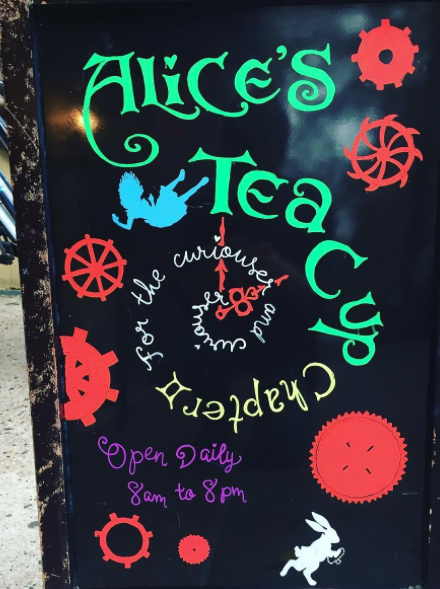 ALiCE'S
TEa
CUp
Chapter II
For the curiouser and curiouser
Open Daily
8am to 8pm